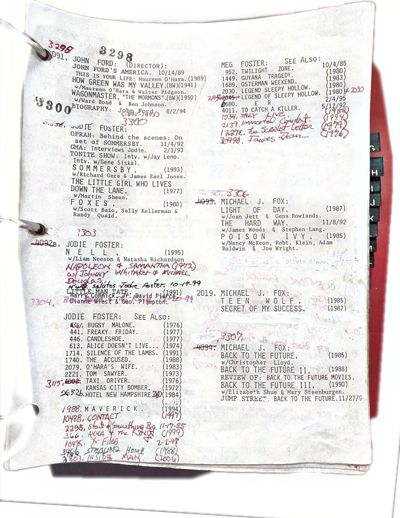 3298
3298
JOHN FORD: (DIRECTOR):
JOHN FORD'S AMERICA. 10/14/89
THIS IS YOUR LIFE: Maureen O'Hara.(1989)
HOW GREEN WAS MY VALLEY.(BW)(1941)
w/Maureen O'Hara & Walter Pidgeon.
WAGONMASTER. "THE MORMONS".(BW)(1950)
w/Ward Bond & Ben Johnson.
BIOGRAPHY: 8/2/94
3300
3300
JODIE FOSTER:
OPRAH: Behind the scenes: On
set of SOMMERSBY. 11/4/92
GMA: Interviews Jodie. 2/3/93
TONITE SHOW: Intv. w/Jay Leno.
Intv. w/Gene Siskel.
SOMMERSBY. (1993)
w/Richard Gere & James Earl Jones.
THE LITTLE GIRL WHO LIVES
DOWN THE LANE. (1977)
w/Martin Sheen.
FOXES. (1980)
w/Scott Baio, Sally Kellerman &
Randy Quaid.
3303
JODIE FOSTER:
NELL. (1995)
w/Liam Neeson & Natasha Richardson
NAPOLEON & SAMANTHA (1972)
w/Johnny Whitaker & Michael
Douglas
Jodie Foster 10-17-99
LITTLE MAN TATE. (1991)
3304.
w/Harry Connick, Jr.
Dianne Wiest &
JODIE FOSTER: See Also:
BUGSY MALONE. (1976)
441. FREAKY FRIDAY. (1977)
446. CANDLESHOE. (1977)
613. ALICE DOESN'T LIVE... (1974)
1714. SILENCE OF THE LAMBS. (1991)
1740. THE ACCUSED. (1988)
2079. O'HARA'S WIFE. (1983)
2221. TOM SAWYER. (1973)
TAXI DRIVER. (1976)
KANSAS CITY BOMBER. (1972)
HOTEL NEW HAMPSHIRE (1984)
1988. MAVERICK. (1994)
1049R. CONTACT (1997)
2298. 11-17-85
366. ANNA & the KING (1999)
X-Files 2-2-97
3466 STEALING HOME (1988)
INSIDE MAN. (2006)
MEG FOSTER: See Also:
952. TWILIGHT ZONE. 10/4/85
1449. GUYANA TRAGEDY. (1980)
1689. OSTERMAN WEEKEND. (1983)
2030. LEGEND SLEEPY HOLLOW. (1980)
LEGEND SLEEPY HOLLOW. (1980)
E. R. 2/4/95
4011. TO CATCH A KILLER. 5/12/92
1034. THEY LIVE (1988)
The Scarlet Letter (1979)
3306
MICHAEL J. FOX:
LIGHT OF DAY. (1987)
w/Joan Jett & Gena Rowlands.
THE HARD WAY. 11/8/92
w/James Woods & Stephen Lang.
POISON IVY. (1985)
w/Nancy McKeon, Robt. Klein, Adam
Baldwin & Joe Wright.
2019. MICHAEL J. FOX:
TEEN WOLF. (1985)
SECRET OF MY SUCCESS. (1987)
3307
MICHAEL J. FOX:
BACK TO THE FUTURE. (1985)
w/Christopher Lloyd.
BACK TO THE FUTURE II. (1989)
REVIEW OF: BACK TO THE FUTURE MOVIES.
BACK TO THE FUTURE III. (1990)
w/Elizabeth Shue & Mary Steenburgen.
JUMP STREET. BACK TO THE FUTURE.11/27/9